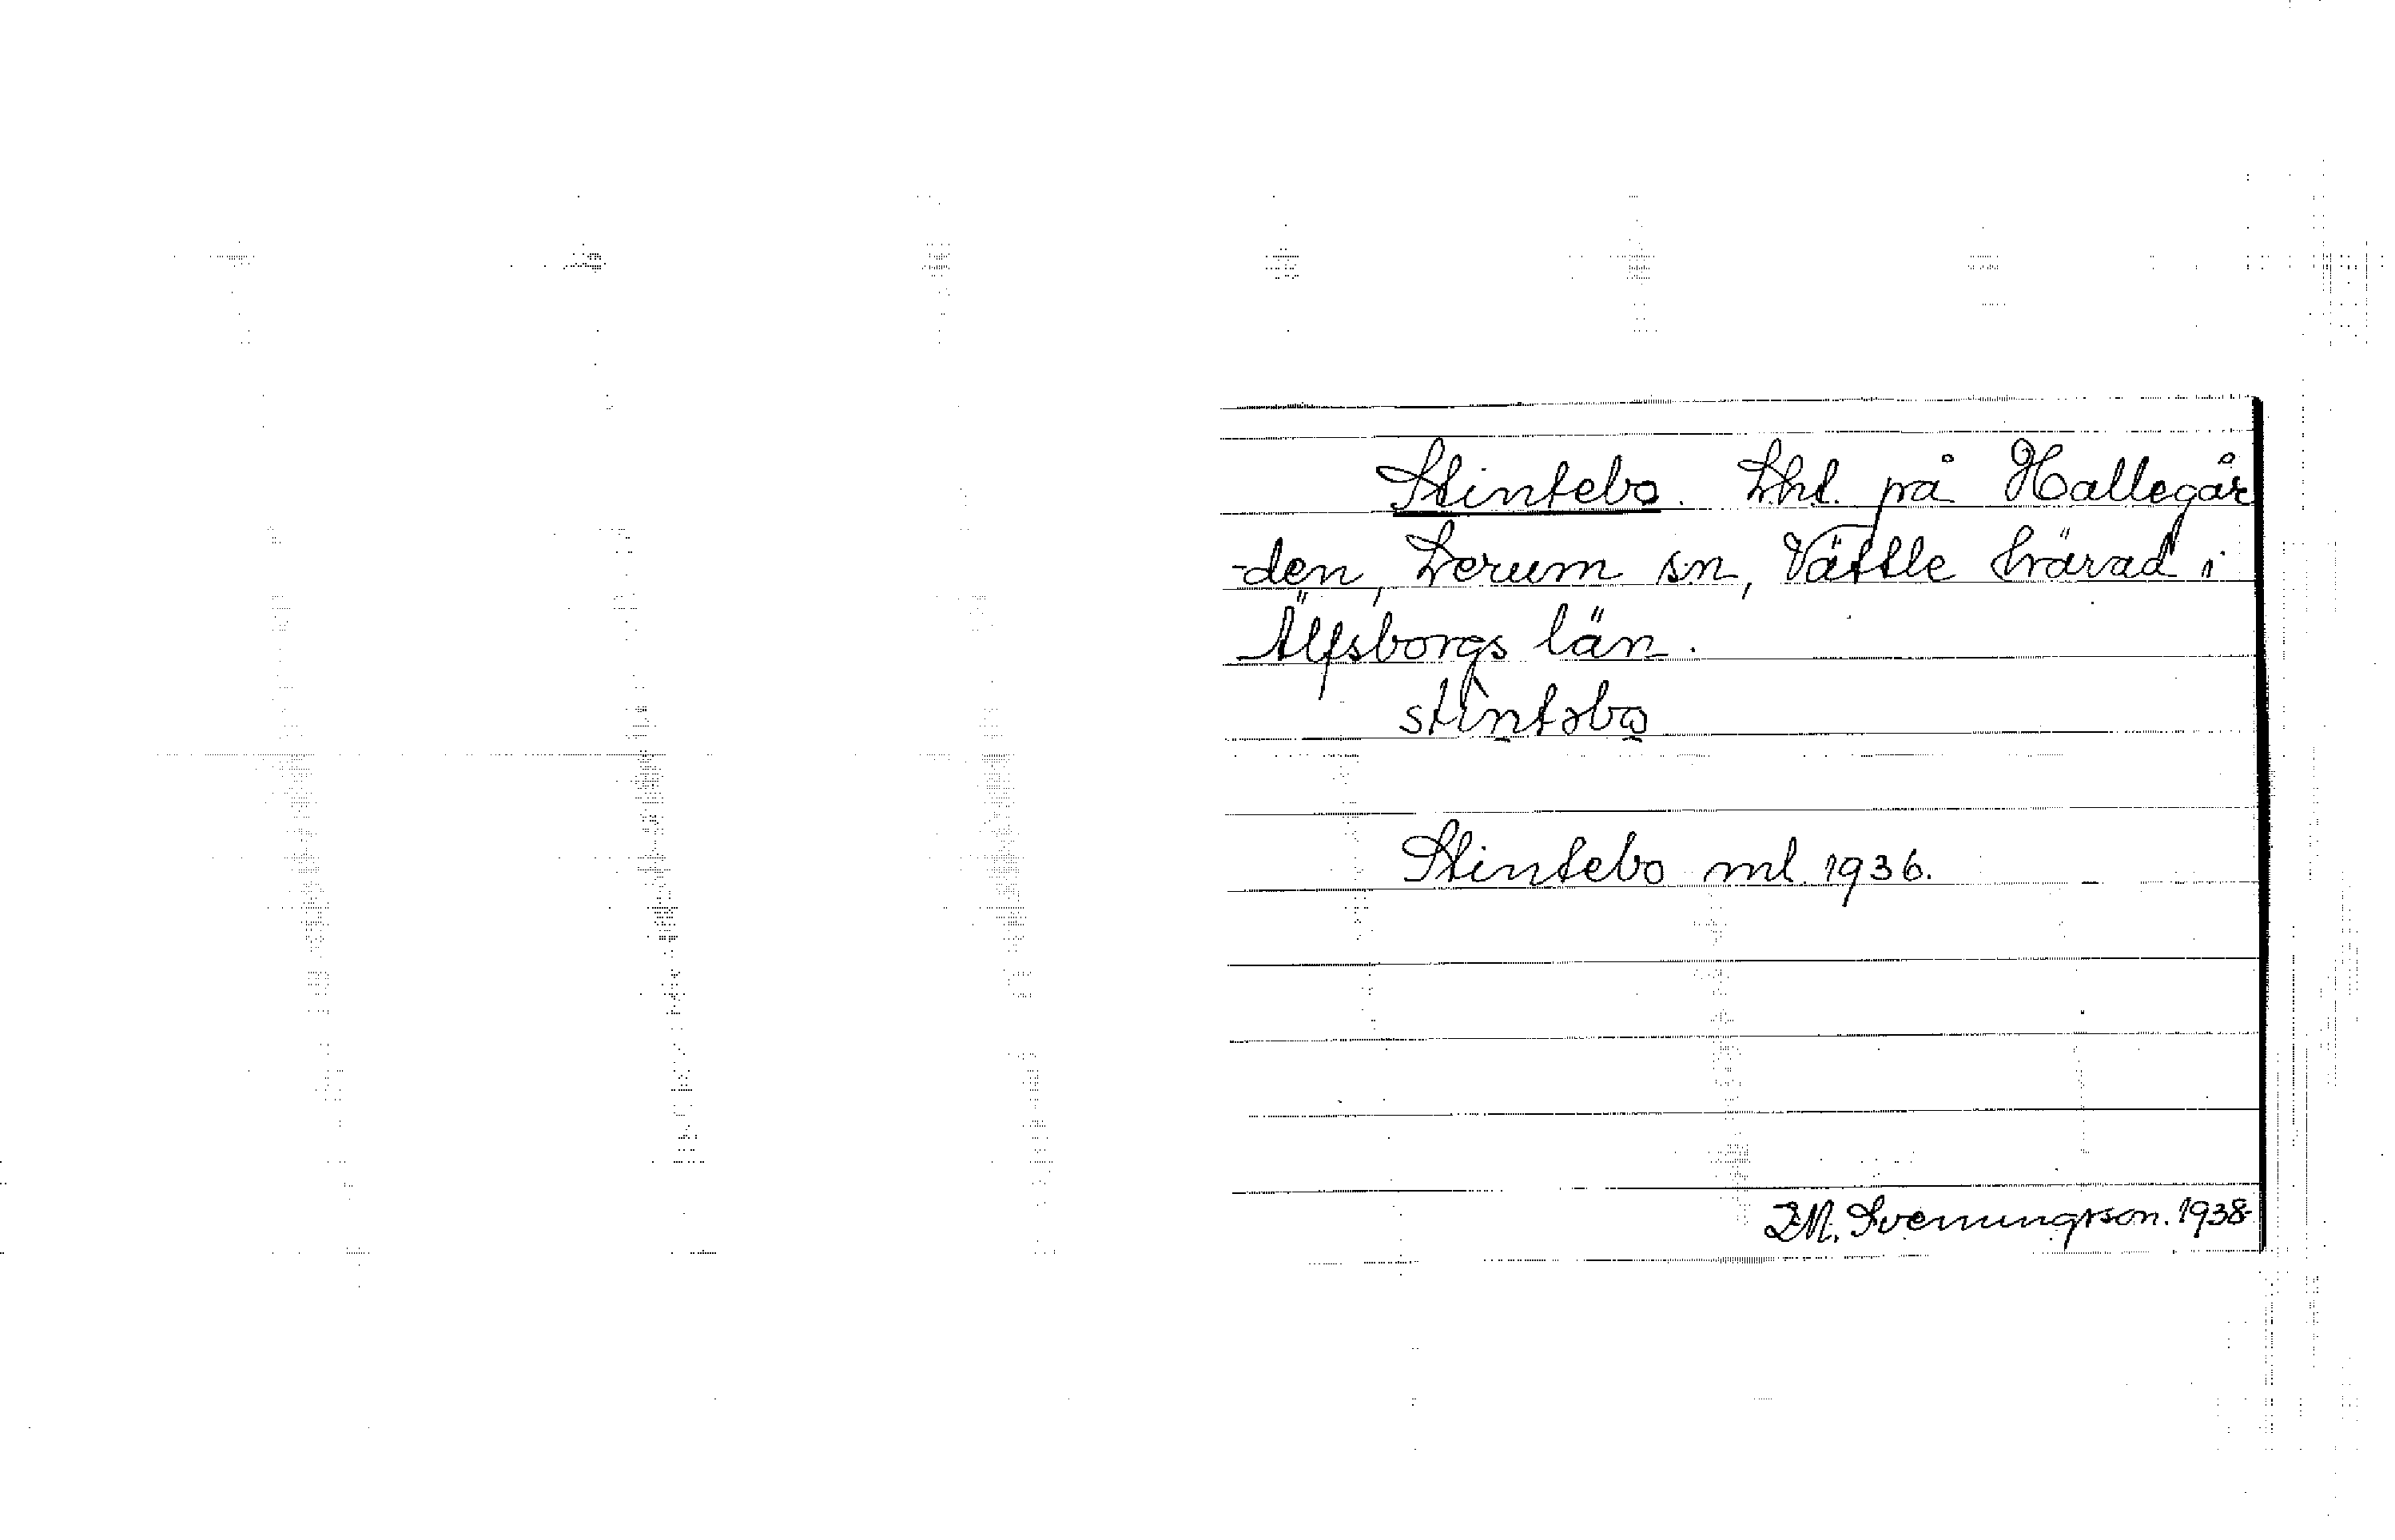 Stintebo. Lht. på Hallegår
-den, Lerum sn, Vättle härad i
Älfsborgs län.
stìntəbo
Stintebo ml. 1936.
D.M. Svenungsson. 1938.